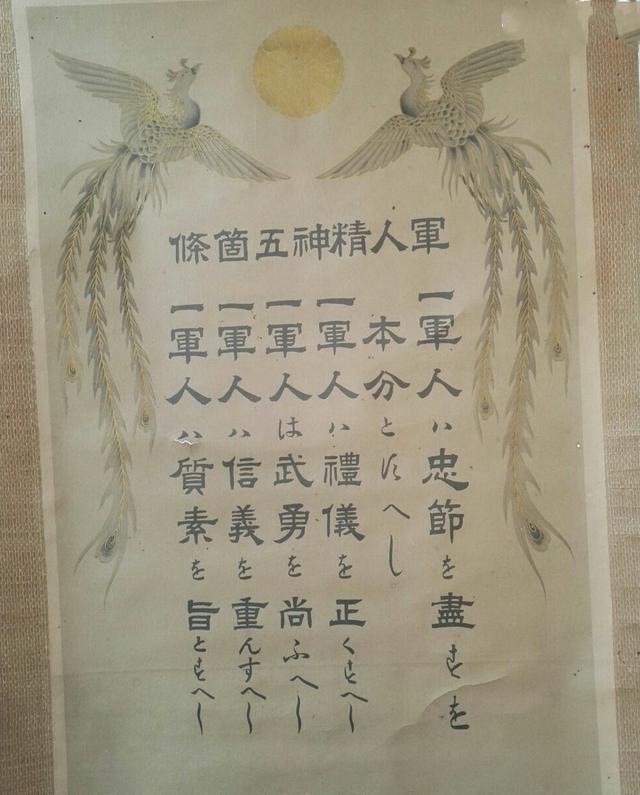 軍人精神五箇條
一軍人ハ忠節を盡すを
本分とすへし
一軍人ハ禮儀を正くすへし
一軍人は武勇を尚ふへし
一軍人ハ信義を重んすへし
一軍人ハ質素を旨とすへし